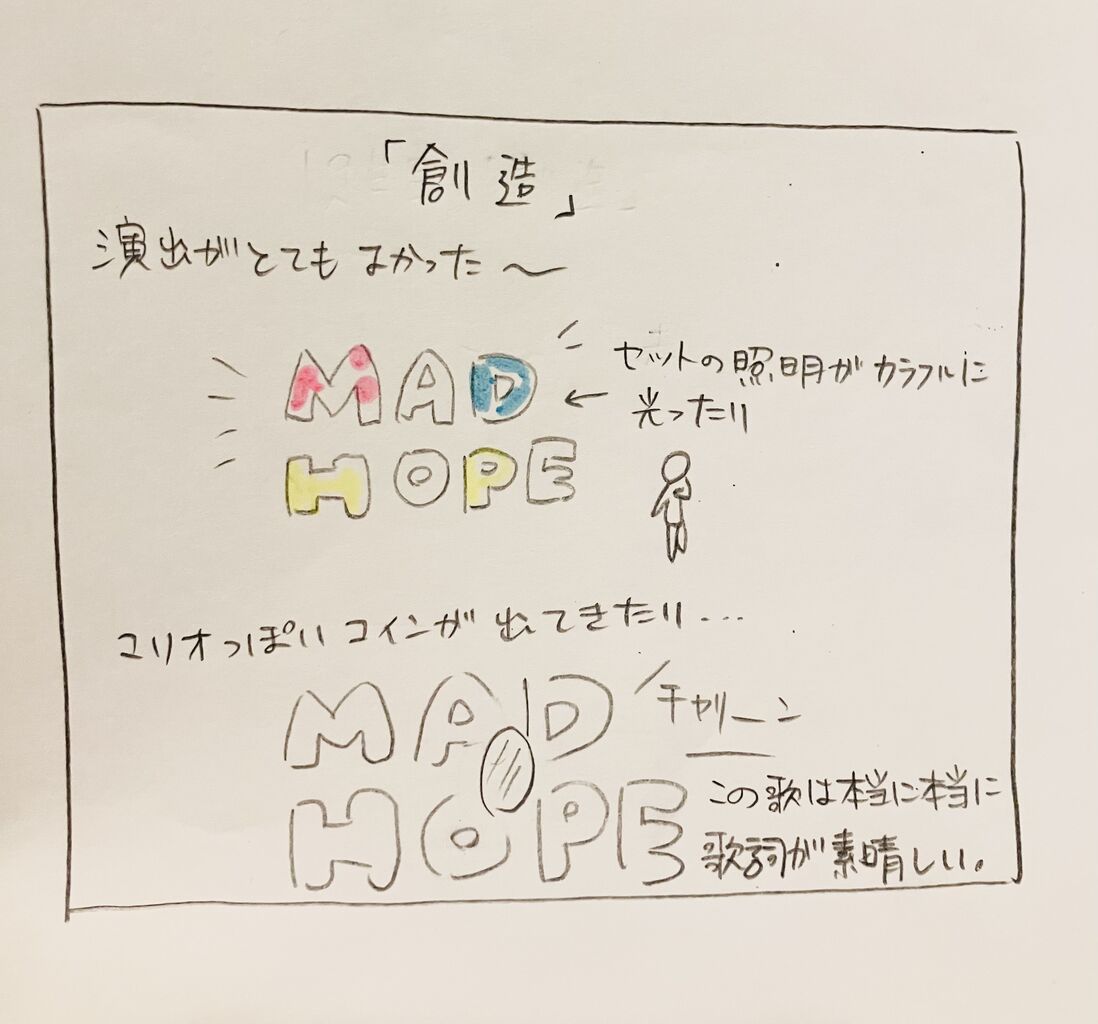 「創造」
演出がとてもよかった～
MAD
HOPE
セットの照明がカラフルに
光ったり
マリオっぽいコインが出てきたり...
MAD
HOPE
チャリーン
この歌は本当に本当に
歌詞が素晴しい。